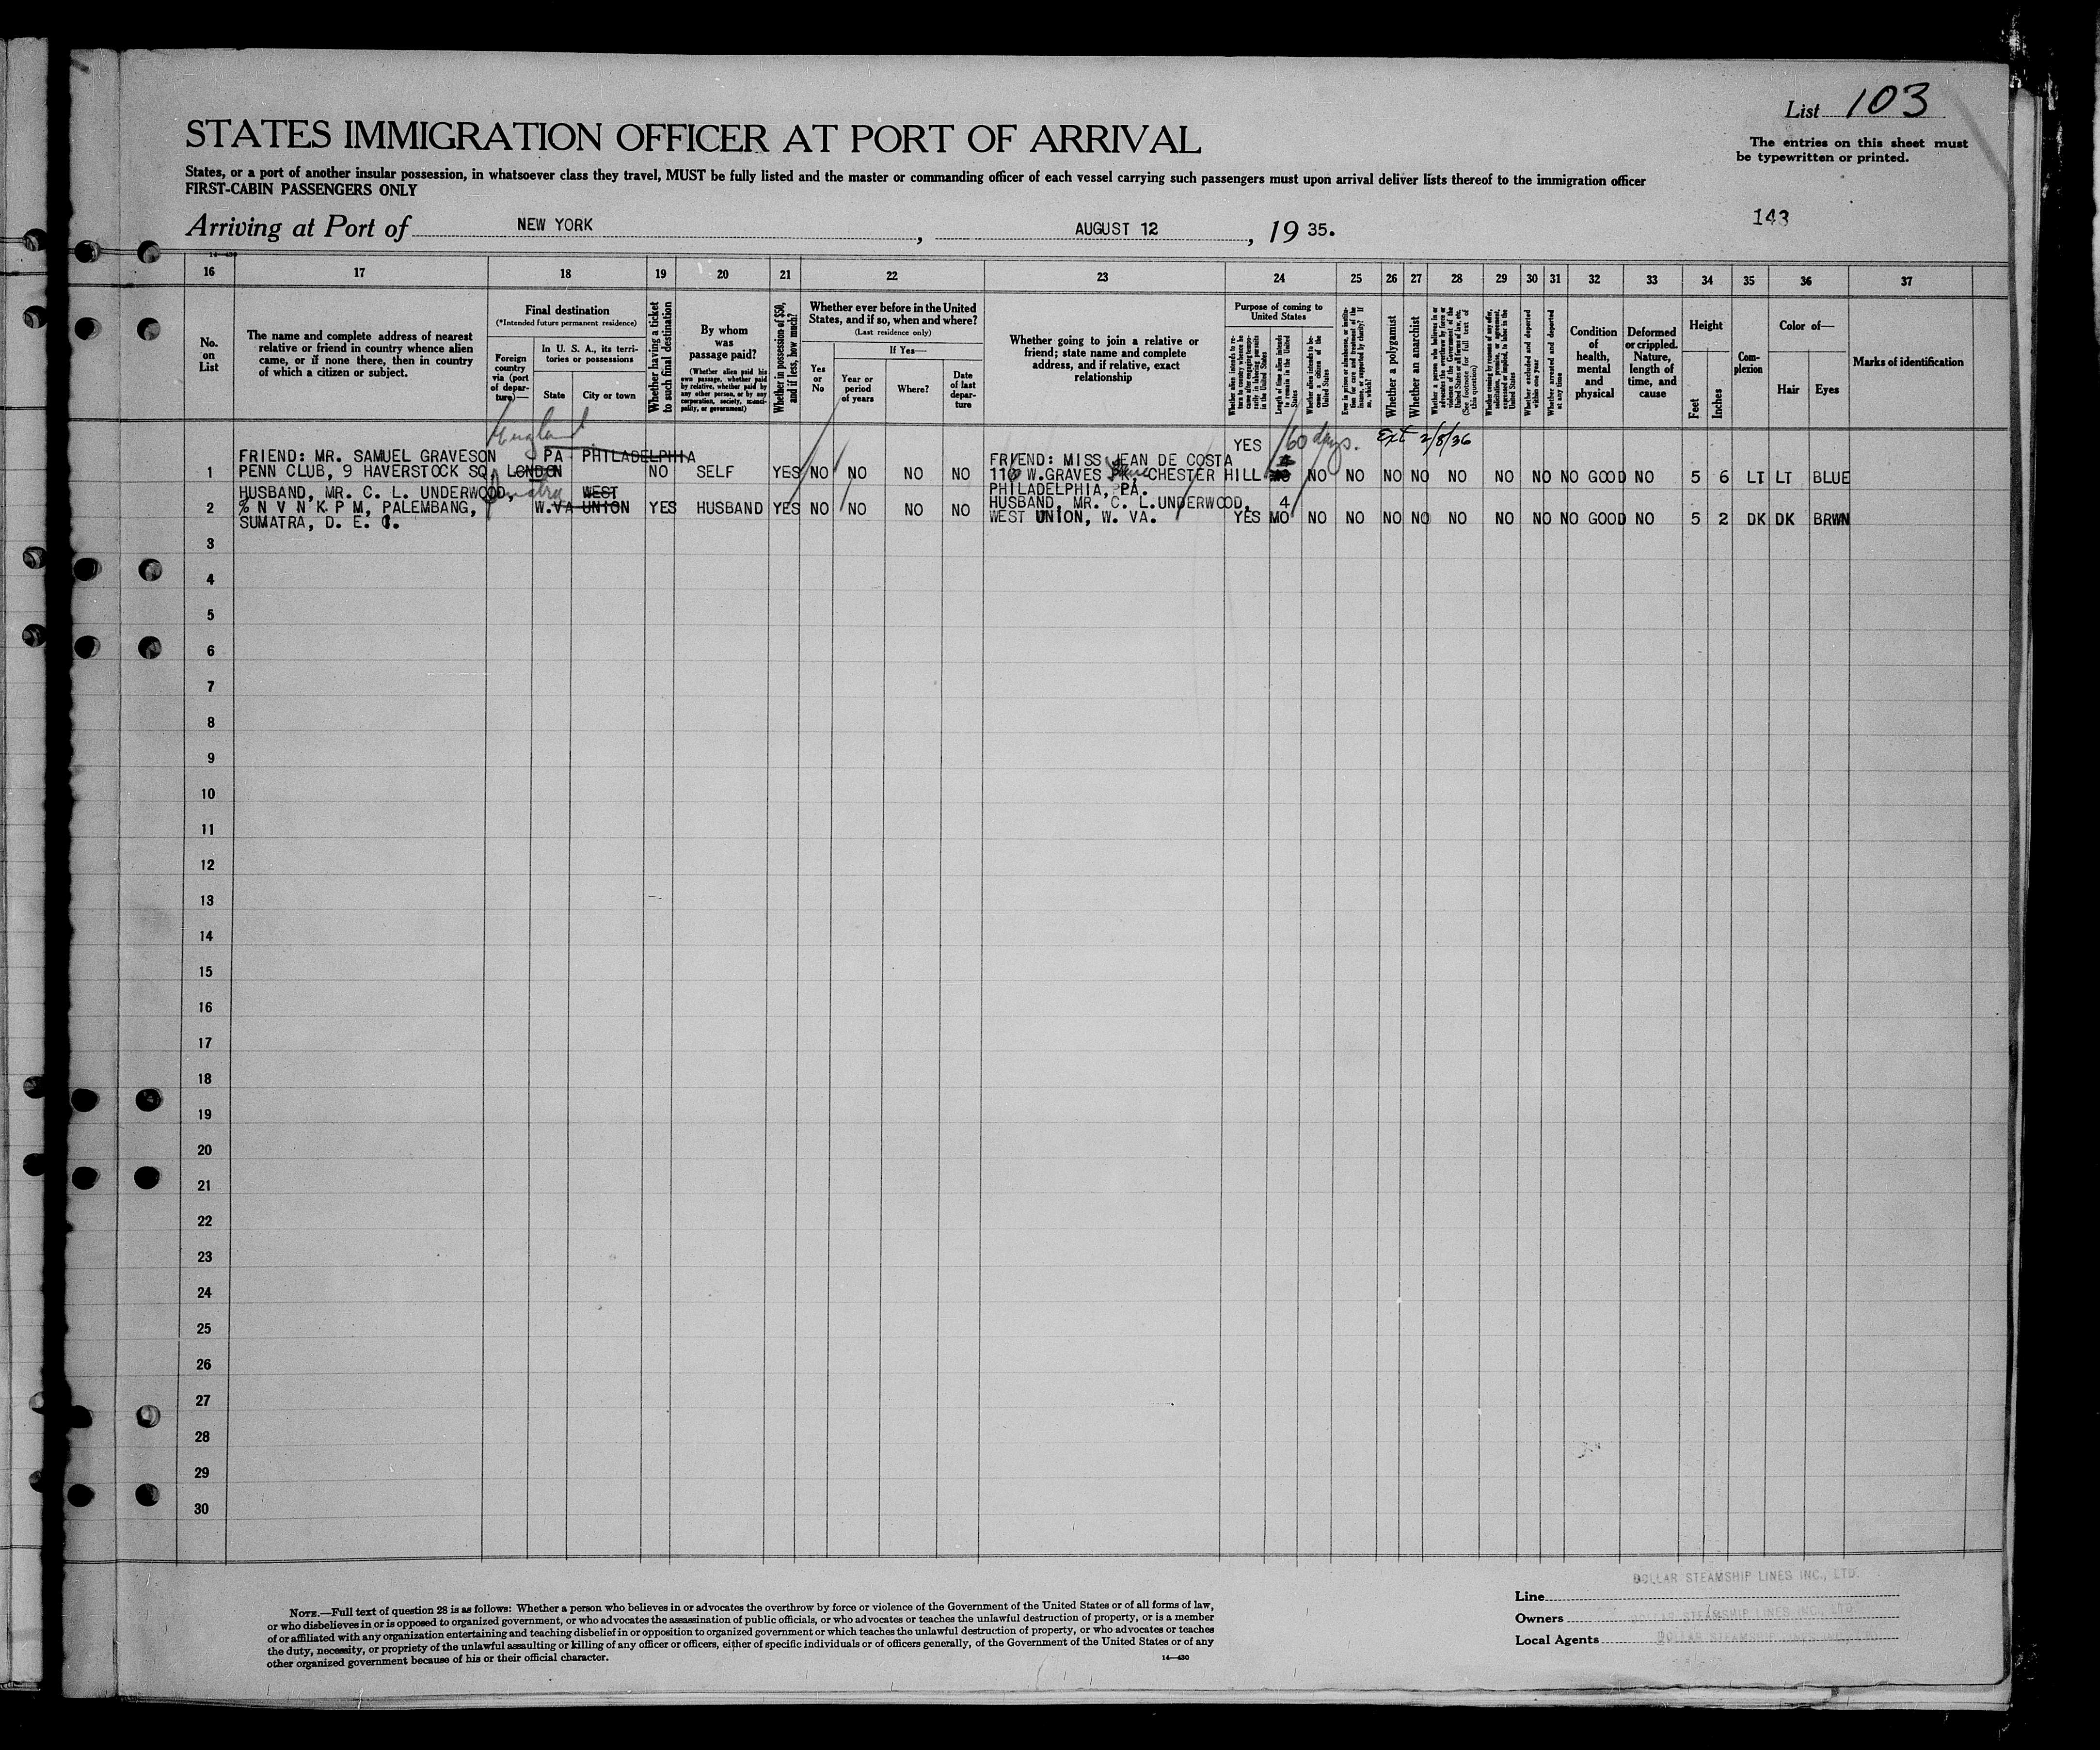 List 103
STATES IMMIGRATION OFFICER AT PORT OF ARRIVAL
The entries on this sheet must
be typewritten or printed.
States, or a port of another insular possession, in whatsoever class they travel, MUST be fully listed and the master or commanding officer of each vessel carrying such passengers must upon arrival deliver lists thereof to the immigration officer
FIRST-CABIN PASSENGERS ONLY
Arriving at Port of NEW YORK, AUGUST 12, 19 35.
143
16 17 18 19 20 21 22 23 24 25 26 27 28 29 30 31 32 33 34 35 36 37
No. on List
The name and complete address of nearest
relative or friend in country whence alien
came, or if none there, then in country
of which a citizen or subject.
Final destination
(*Intended future permanent residence)
Foreign country via (port of departure)—
In U. S. A., its territories or possessions
State
City or town
Whether having a ticket to such final destination
By whom was passage paid?
(Whether alien paid his own passage, whether paid by relative, whether paid by any other person, or by any corporation, society, municipality, or government)
Whether in possession of $50, and if less, how much?
Whether ever before in the United States, and if so, when and where?
(Last residence only)
If Yes—
Yes or No
Year or period of years
Where?
Date of last departure
Whether going to join a relative or
friend; state name and complete
address, and if relative, exact
relationship
Purpose of coming to United States
Whether alien intends to return to country whence he came after engaging temporarily in laboring pursuits in the United States
Length of time alien intends to remain in the United States
Whether alien intends to become a citizen of the United States
Ever in prison or almshouse, or institution for care and treatment of the insane, or supported by charity? If so, which?
Whether a polygamist
Whether an anarchist
Whether a person who believes in or advocates the overthrow by force or violence of the Government of the United States or all forms of law, etc. (See footnote for full text of this question)
Whether coming by reason of any offer, solicitation, promise, or agreement, expressed or implied, to labor in the United States
Whether excluded and deported within one year
Whether arrested and deported at any time
Condition of health, mental and physical
Deformed or crippled. Nature, length of time, and cause
Height
Feet
Inches
Complexion
Color of—
Hair
Eyes
Marks of identification
England
60 days. Ext 2/8/36
FRIEND: MR. SAMUEL GRAVESON PA PHILADELPHIA FRIEND: MISS JEAN DE COSTA YES
1 PENN CLUB, 9 HAVERSTOCK SQ, LONDON NO SELF YES NO NO NO NO 116 W.GRAVES CHESTER HILL NO NO NO NO NO NO NO NO GOOD NO 5 6 LT LT BLUE
PHILADELPHIA, PA.
HUSBAND, MR. C. L. UNDERWOOD, Sumatra WEST
2 % N V N K P M, PALEMBANG, W.VA UNION YES HUSBAND YES NO NO NO NO HUSBAND, MR. C. L. UNDERWOOD, 4
SUMATRA, D. E. I. WEST UNION, W. VA. YES MO NO NO NO NO NO NO NO NO GOOD NO 5 2 DK DK BRWN
3
4
5
6
7
8
9
10
11
12
13
14
15
16
17
18
19
20
21
22
23
24
25
26
27
28
29
30
NOTE.—Full text of question 28 is as follows: Whether a person who believes in or advocates the overthrow by force or violence of the Government of the United States or of all forms of law,
or who disbelieves in or is opposed to organized government, or who advocates the assassination of public officials, or who advocates or teaches the unlawful destruction of property, or is a member
of or affiliated with any organization entertaining and teaching disbelief in or opposition to organized government or which teaches the unlawful destruction of property, or who advocates or teaches
the duty, necessity, or propriety of the unlawful assaulting or killing of any officer or officers, either of specific individuals or of officers generally, of the Government of the United States or of any
other organized government because of his or their official character.
14—430
Line DOLLAR STEAMSHIP LINES INC., LTD.
Owners DOLLAR STEAMSHIP LINES INC., LTD.
Local Agents DOLLAR STEAMSHIP LINES INC., LTD.